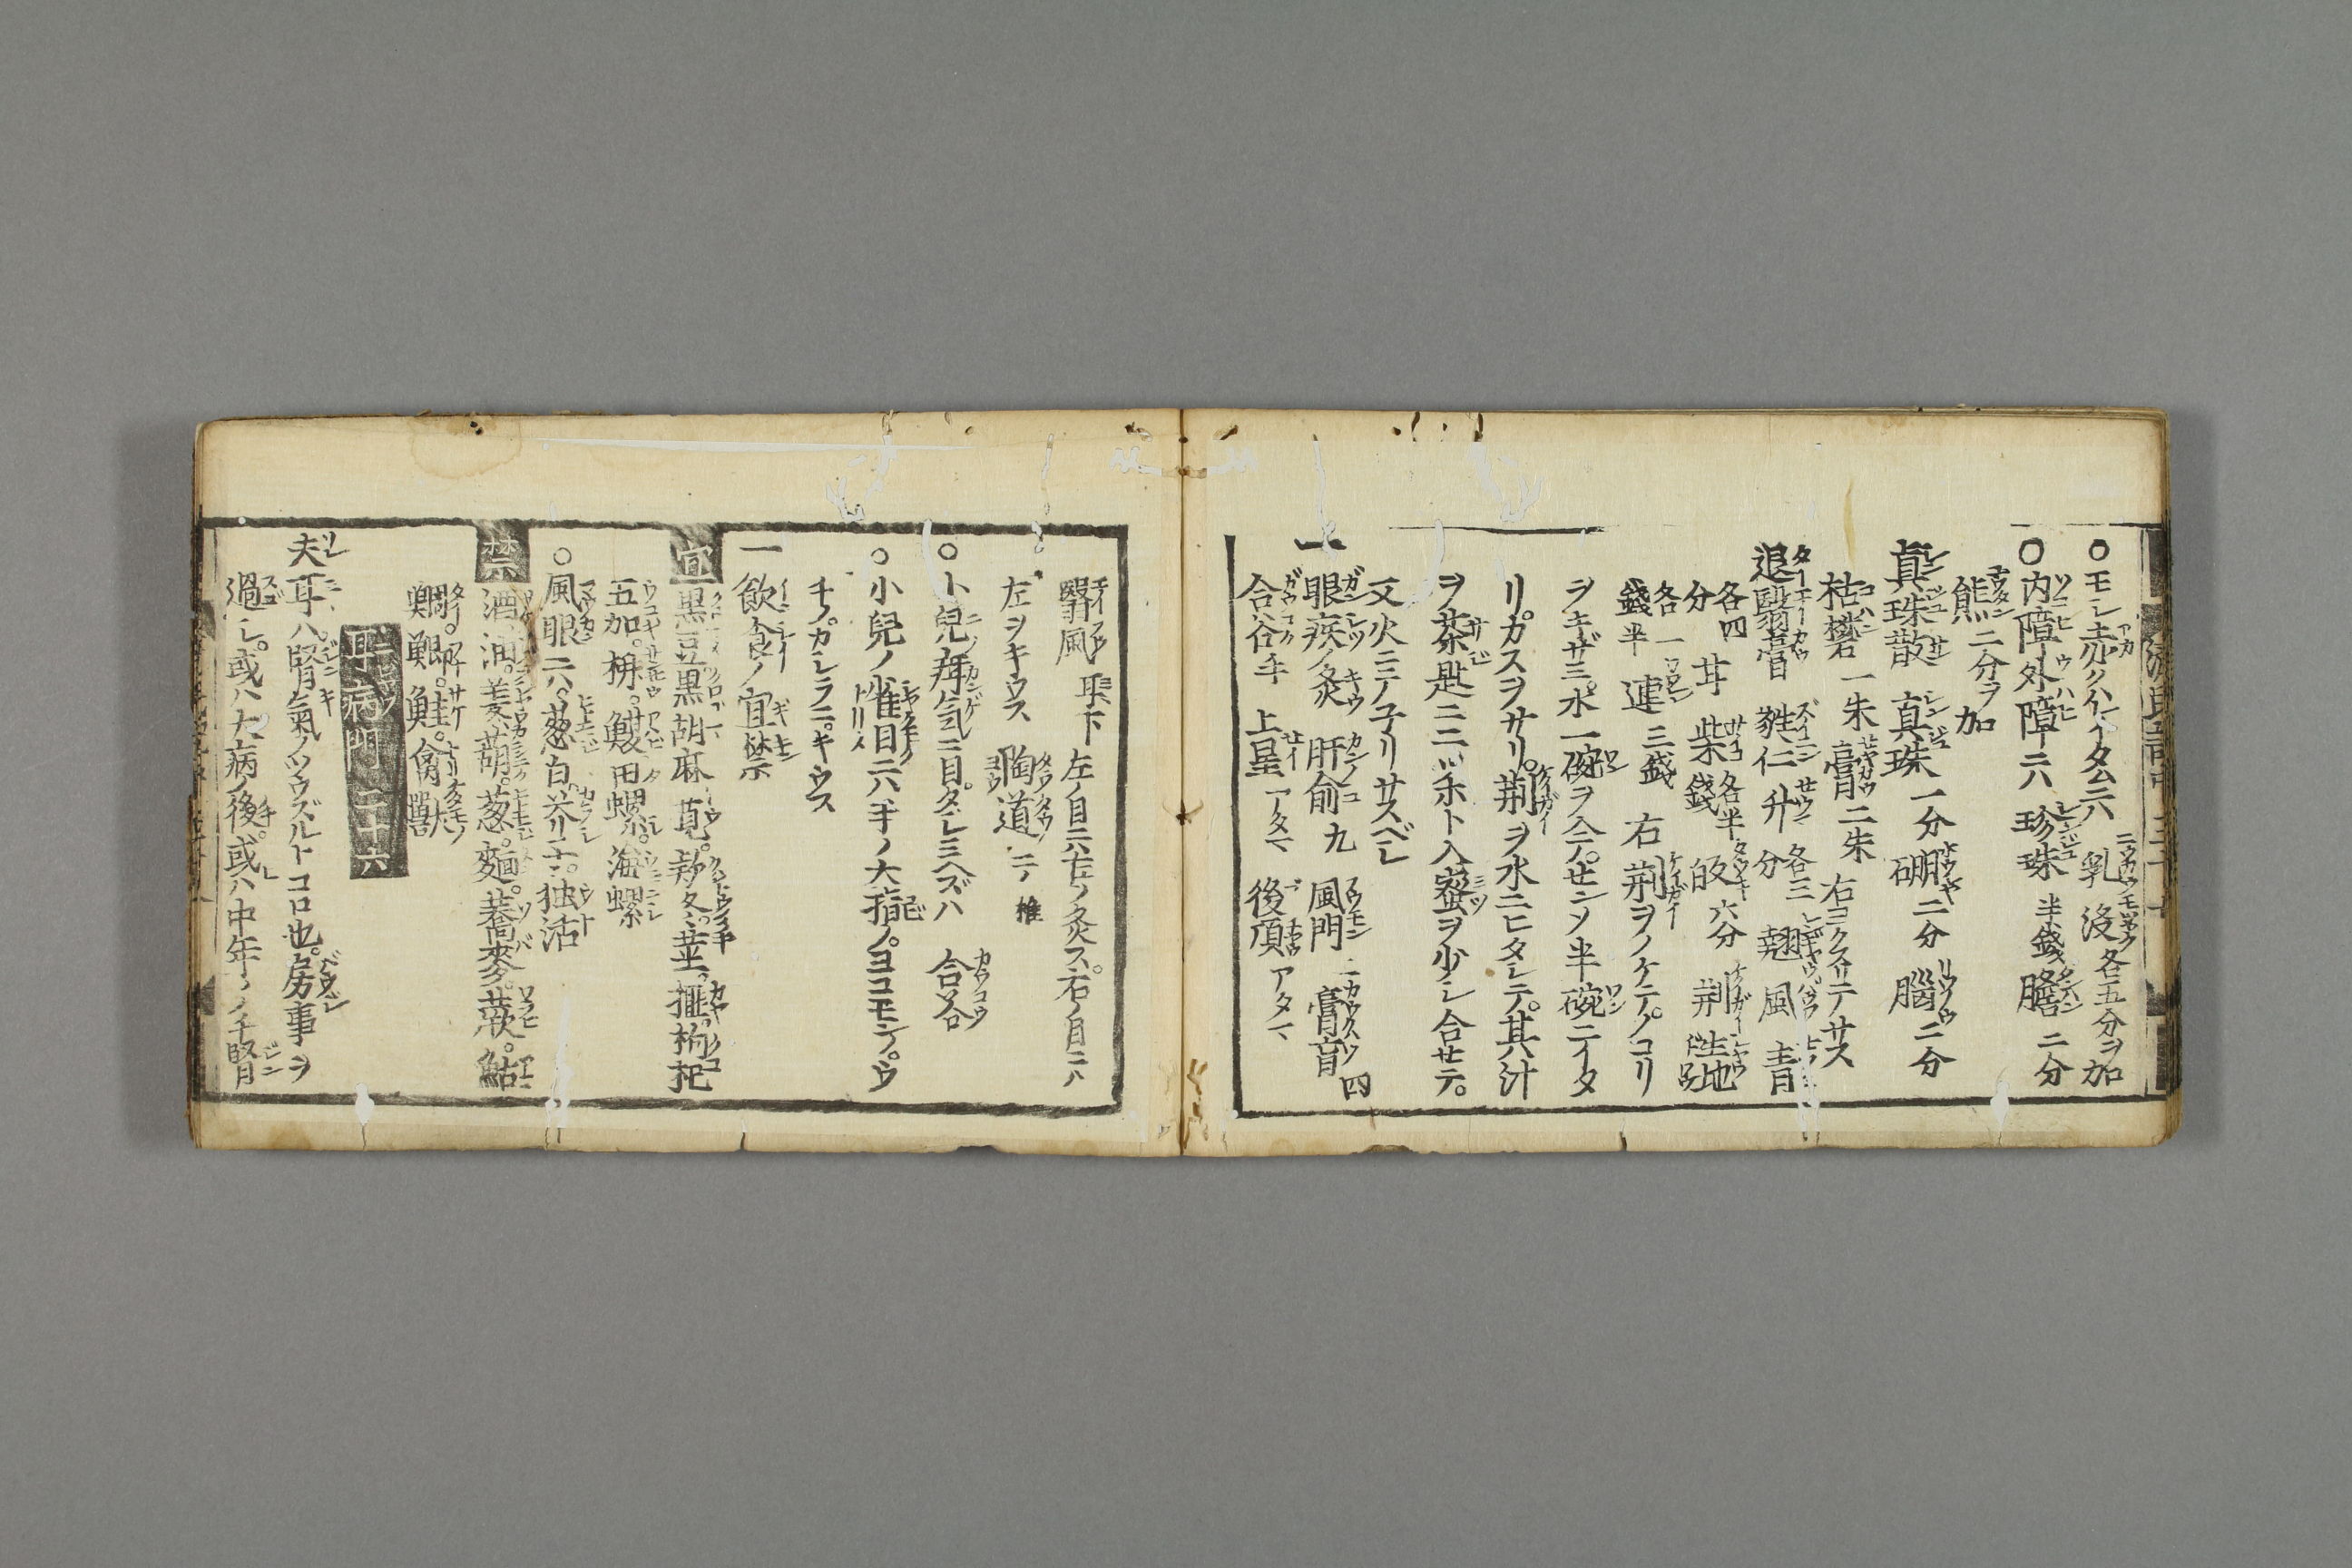 ○モシ赤クハレイタムニハ 乳 没 各五分ヲ加
○内障外障ニハ 珍珠 半錢 膽 二分
熊 二分ヲ加
真珠散 真珠 一分 硼 二分 腦 二分
枯礬 一朱 膏 二朱 右コクスリテサス
退翳膏 蕤仁 升 各三分 翹 風 青
各四分 茸 柴 各半錢 皈 六分 荆 生地
各一錢半 連 三錢 右荆ヲノケテノコリ
ヲキザミ水一碗ヲ入テセンメ半碗ニイタ
リカスヲサリ荆ヲ水ニヒタシテ其汁
ヲ茶匙ニ二ツホト入蜜ヲ少シ合セテ
又火ニテ子リサスベシ
一眼疾ノ灸 肝俞 九 風門 二 膏肓 四
合谷 手 上星 アタマ 後頂 アタマ
翳風 耳下 左ノ目ニハ右ノ灸ス右ノ目ニハ
左ヲキウス 陶道 一ノ椎
○小兒疳氣ニ目タヾレミヘズハ 合谷
○小兒ノ雀目ニハ手ノ大指ノヨコモンノウ
チノカシラニキウス
一飲食ノ宜禁
宜 黒豆 黒胡麻 莧 款冬 韮 榧 枸杞
五加 栴 鰒 田螺 海螺
○風眼ニハ葱白 芥 独活
禁 酒 油 姜 蒜 葱 麵 蕎麥 蕨 鮎
鯛 鯽 鮭 禽獣
耳病門 二十六
夫耳ハ腎氣ノツウズルトコロ也房事ヲ
過シ或ハ大病ノ後或ハ中年ノノチ腎